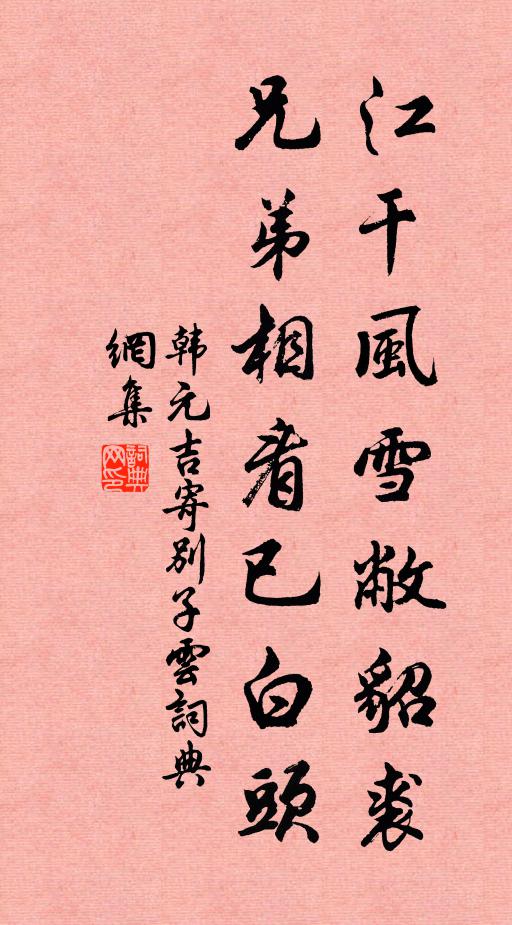 江干風雪敝貂裘
兄弟相看已白頭
韩元吉寄别子雲詞典
網集
詞典
网印